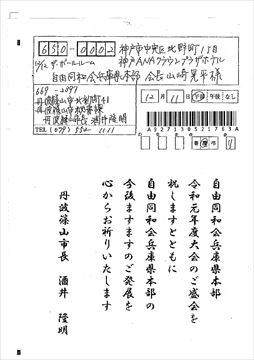 650-0002
神戸市中央区北野町1丁目
神戸ANAクラウンプラザホテル
10/12 ザ・ボールルーム
自由同和会兵庫県本部 会長 山崎晃平様
669-2397
丹波篠山市北新町41
丹波篠山市秘書課
丹波篠山市長 酒井隆明
TEL (079) 552 1111
12月11日 午前 午後 なし
A927130521763A
自由同和会兵庫県本部
令和元年度大会のご盛会を
祝しますとともに
自由同和会兵庫県本部の
今後ますますのご発展を
心からお祈りいたします
丹波篠山市長 酒井 隆明